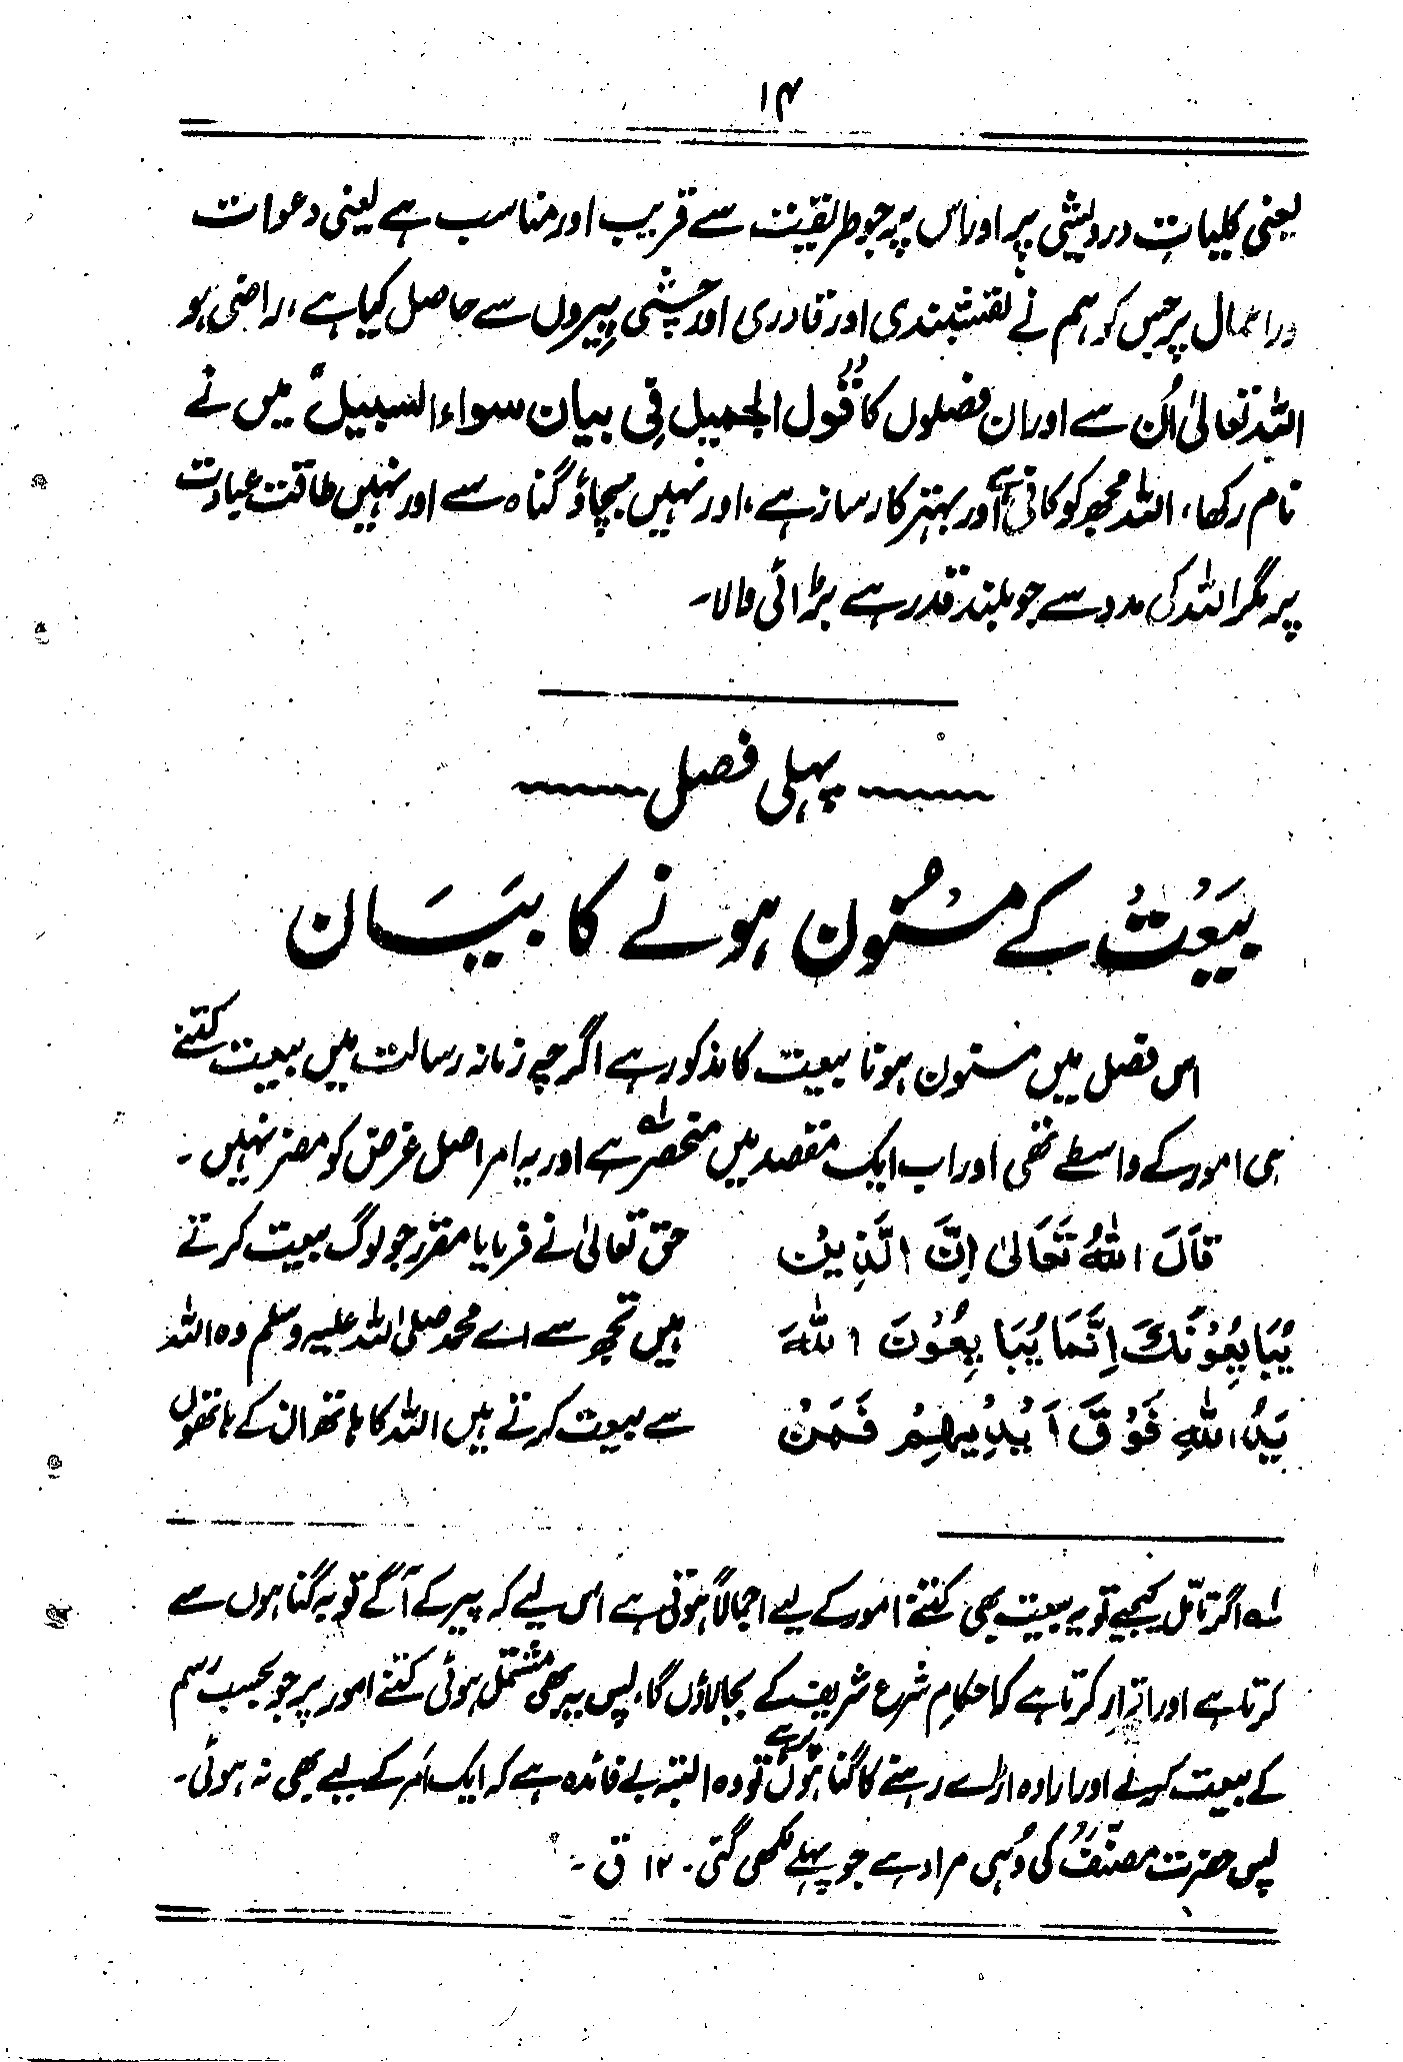 ۱۴
یعنی کلیات درویشی پر اور اس پر جو طریقت سے قریب اور مناسب ہے یعنی دعوات
وراعمال پر جس کو ہم نے نقشبندی اور قادری اور چشتی پیروں سے حاصل کیا ہے، راضی ہو
اللہ تعالیٰ اُن سے اور ان فصلوں کا قُول الجمیل فی بیان سواء السبیل میں نے
نام رکھا، اللہ مجھ کو کافی ہے اور بہتر کارساز ہے، اور نہیں بچاؤ گناہ سے اور نہیں طاقت عبادت
پر مگر اللہ کی مدد سے جو بلند قدر ہے بڑائی والا۔
پہلی فصل
بیعت کے مسنون ہونے کا بیان
اس فصل میں مسنون ہونا بیعت کا مذکور ہے اگرچہ زمانہ رسالت میں بیعت کتنے
ہی امور کے واسطے تھی اور اب ایک مقصد میں منحصر ہے لہ اور یہ امر اصل غرض کو مضر نہیں۔
قَالَ اللّٰهُ تَعَالىٰ اِنَّ الَّذِيْن
يُبَايِعُوْنَكَ اِنَّمَا يُبَا يِعُوْنَ اللّٰهَ
يَدُ اللّٰهِ فَوْقَ اَيْدِيْهِمْ فَمَنْ
حق تعالیٰ نے فرمایا مقرر جو لوگ بیعت کرتے
ہیں تجھ سے اے محمد صلی اللہ علیہ وسلم وہ اللہ
سے بیعت کرتے ہیں اللہ کا ہاتھ ان کے ہاتھوں
لہ اگر تامّل کیجیے تو یہ بیعت بھی کتنے امور کے لیے اجمالاً ہوتی ہے اس لیے کہ پیر کے آگے توبہ گناہوں سے
کرتا ہے اور اقرار کرتا ہے کہ احکام شرع شریف کے بجالاؤں گا، پس یہ بھی مشتمل ہوئی کتنے امور پر جو بحسب رسم
کے بیعت کرلے اور ارادہ اڑے رہنے کا گناہوں پر ہے تو وہ البتہ بے فائدہ ہے کہ ایک امر کے لیے بھی نہ ہوئی۔
پس حضرت مصنّفؒ کی وُہی مراد ہے جو پہلے لکھی گئی۔ ۱۲ ق۔